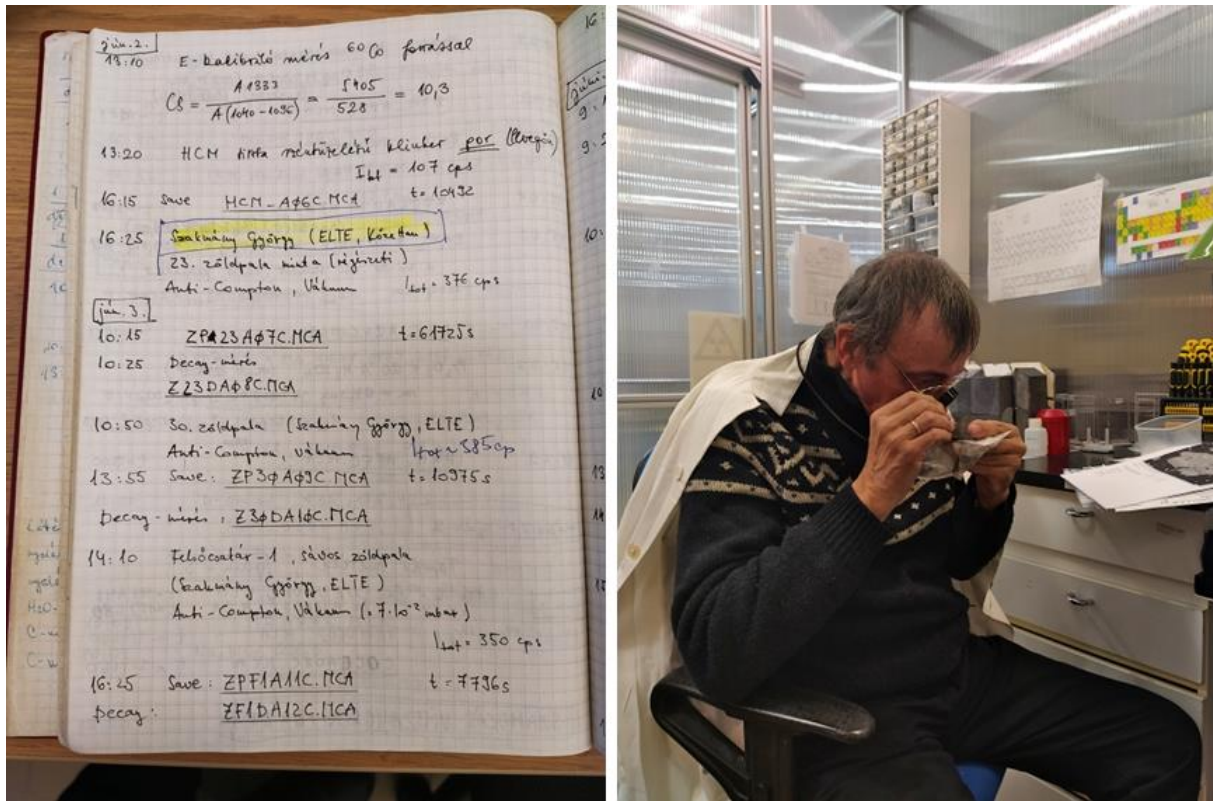 jún. 2.
13:10 E-kalibráló mérés ⁶⁰Co forrással
CS = A 1333 / A(1040-1096) = 5405 / 528 = 10,3
13:20 HCM klinker por
I = 107 cps
16:15 Save HCM_AØ6C.MCA t = 10492
16:25 Szakmány György (ELTE, Kőzettan)
23. zöldpala minta (régészeti)
Anti-Compton, Vákuum Itot = 376 cps
jún. 3.
10:15 ZP23AØ7C.MCA t = 61725 s
10:25 Decay-mérés
Z23DAØ8C.MCA
10:50 30. zöldpala (Szakmány György, ELTE)
Anti-Compton, vákuum Itot ~ 385 cp
13:55 Save: ZP3ØAØ9C.MCA t = 10975 s
Decay-mérés: Z3ØDA1ØC.MCA
14:10 Felsőcsatár-1, sávos zöldpala
(Szakmány György, ELTE)
Anti-Compton, Vákuum (~7·10⁻² mbar)
Itot = 350 cps
16:25 Save: ZPF1A11C.MCA t = 7796 s
Decay: ZF1DA12C.MCA